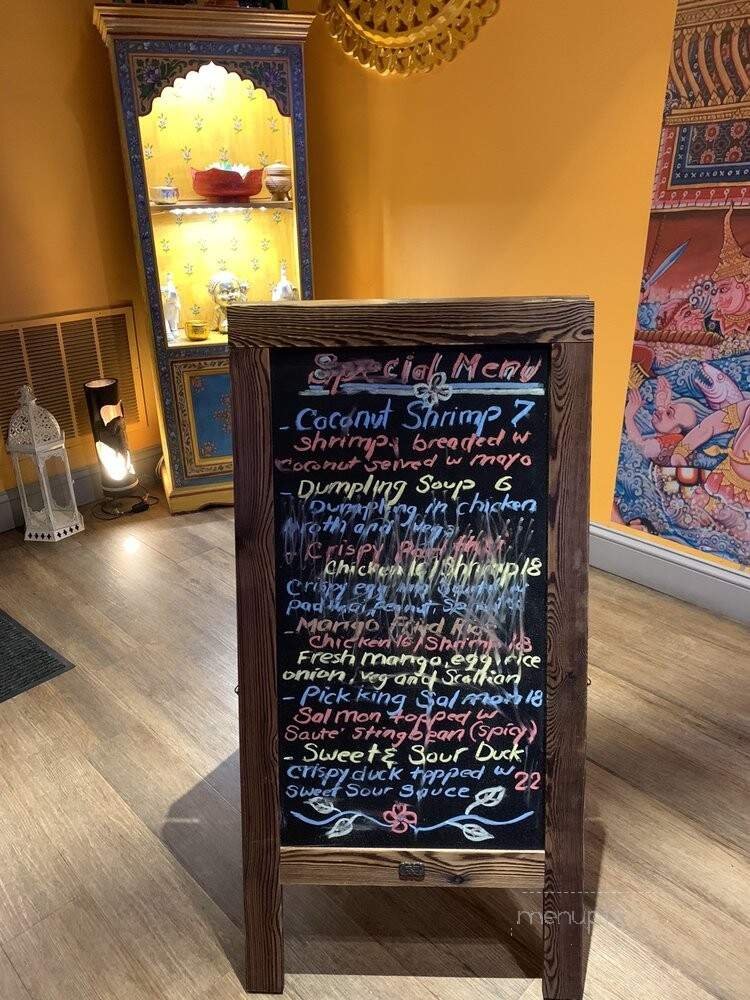 Special Menu
- Coconut Shrimp 7
shrimp, breaded w
coconut served w mayo
- Dumpling Soup 6
Dumpling in chicken
broth and vegs
- Crispy Pad Thai
Chicken 16 / Shrimp 18
Crispy egg
pad thai, peanut,
- Mango Fried Rice
Chicken 16 / Shrimp 18
Fresh mango, egg, rice
onion, veg and Scallian
- Pick king Salmon 18
Salmon topped w
Saute' stingbean (spicy)
- Sweet & Sour Duck
crispy duck topped w 22
Sweet Sour sauce
menupix